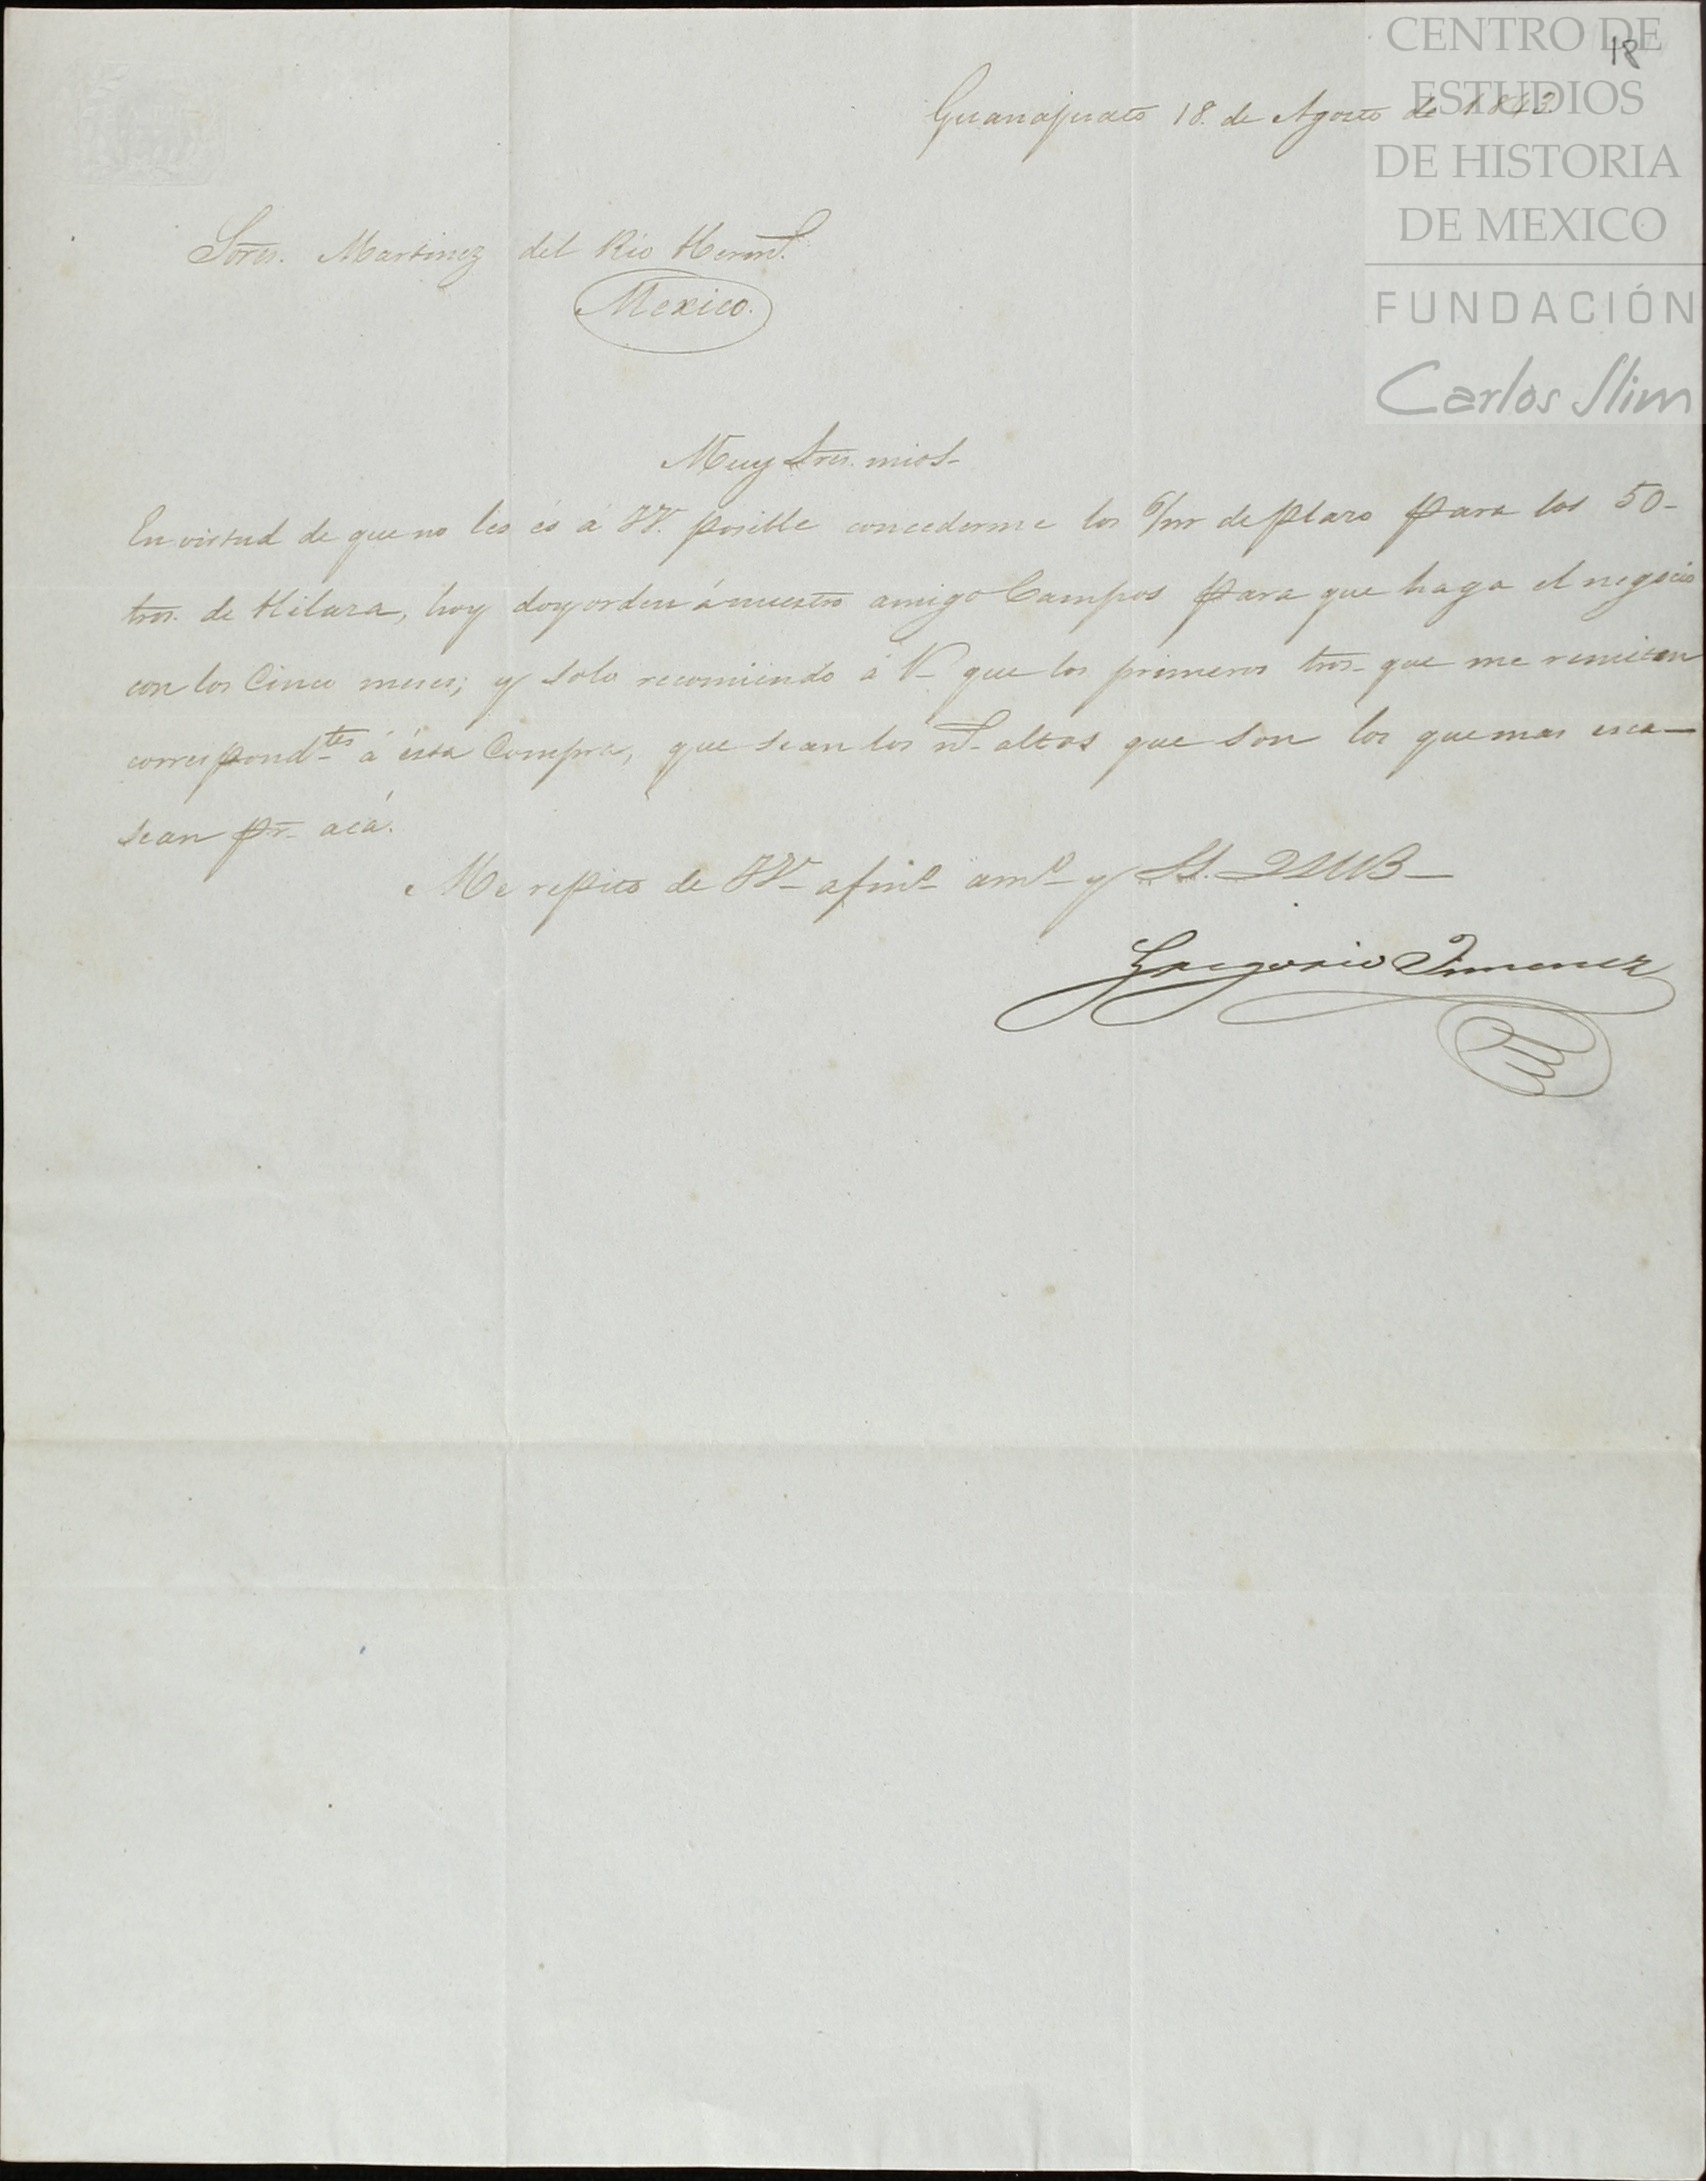 CENTRO DE
ESTUDIOS
DE HISTORIA
DE MEXICO
FUNDACIÓN
Carlos Slim
18
Guanajuato 18. de Agosto de 1843.
Sores. Martinez del Rio Herms.
Mexico.
Muy Sres. mios-
En virtud de que no les és á VV. posible concederme los 6/m de plazo para los 50-
tros. de Hilaza, hoy doy orden á nuestro amigo Campos para que haga el negocio
con los Cinco meses; y solo recomiendo á V- que los primeros tros- que me remitan
correspondtes á ésta Compra, que sean los ns- altos que son los que mas esca-
sean pr- acá.
Me repito de VV- afmo- amo- y SS. QSMB-
Gregorio Jimenez